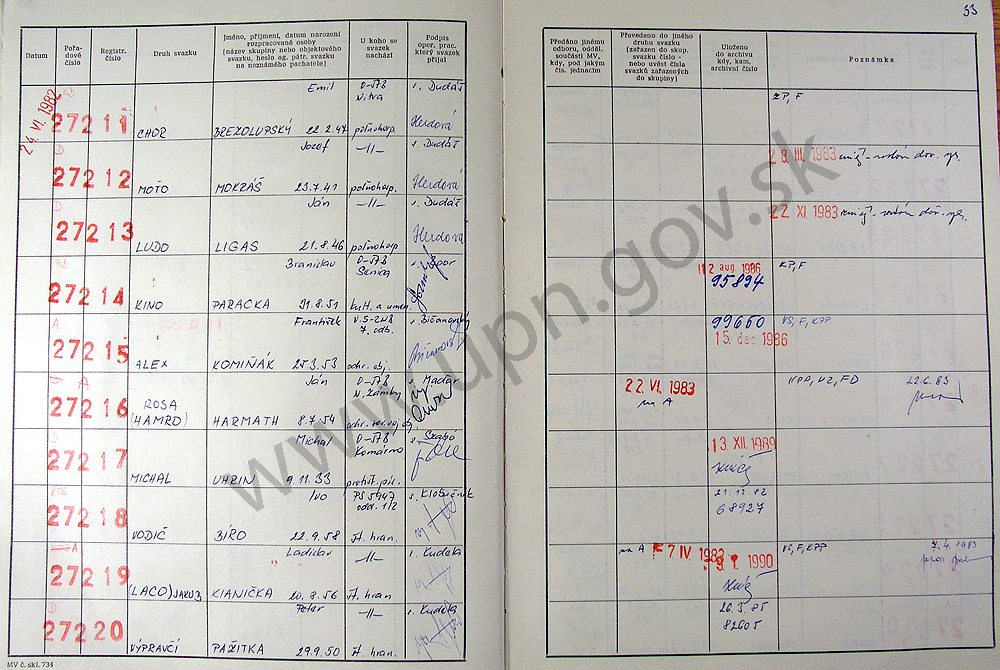 33
Datum
Pořa-
dové
číslo
Registr.
číslo
Druh svazku
Jméno, příjmení, datum narození
rozpracované osoby
(název skupiny nebo objektového
svazku, heslo ag. pátr. svazku
na neznámého pachatele)
U koho se
svazek
nachází
Podpis
oper. prac.
který svazek
přijal
Předáno jinému
odboru, odděl.
součásti MV,
kdy, pod jakým
čís. jednacím
Převedeno do jiného
druhu svazku
(zařazen do skup.
svazku číslo -
nebo uvést čísla
svazků zařazených
do skupiny)
Uloženo
do archivu
kdy, kam,
archivní číslo
Poznámka
24. VI. 1982
27211
CHOR
Emil
BREZOLUPSKÝ 22.2.47
O-ŠTB
Nitra
poľnohosp.
s. Dudáš
Herdová
KP, F
D
27212
MOŤO
Jozef
MOKRÁŠ 23.7.41
-||-
poľnohosp.
s. Dudáš
Herdová
28. III. 1983
D
27213
LUDO
Ján
LIGAS 21.8.46
-||-
poľnohosp.
s. Dudáš
Herdová
22. XI 1983
27214
KINO
Branislav
PARAČKA 31.8.51
O-ŠTB
Senica
kult. a umen.
12 aug. 1986
95894
KP, F
A
27215
ALEX
František
KOMIŇÁK 25.3.53
7. odb.
ochr. obj.
99660
15. dec 1986
VS, F, KPP
A
27216
ROSA
(HAMRO)
Ján
HARMATH 8.7.54
O-ŠTB
N. Zámky
s. Madar
22. VI. 1983
na A
KPP, VZ, FD 22.6.83
D
27217
MICHAL
Michal
UHRIN 9.11.33
O-ŠTB
Komárno
s. Szabó
13. XII. 1989
27218
VODIČ
Ivo
BÍRO 22.9.58
PS 5947
odd. 1/2
št. hran.
s. Klobučník
21.12.82
68927
A
27219
(LACO) JAKUB
Ladislav
KIANIČKA 20.8.56
-||-
št. hran.
s. Kudela
na A
7 IV 1983
9. 1. 1990
VS, F, KPP 7.4.1983
D
27220
VÝPRAVČÍ
Peter
PAŽITKA 29.9.50
-||-
št. hran.
s. Kudela
26.5.85
82605
MV č. skl. 734
www.upn.gov.sk